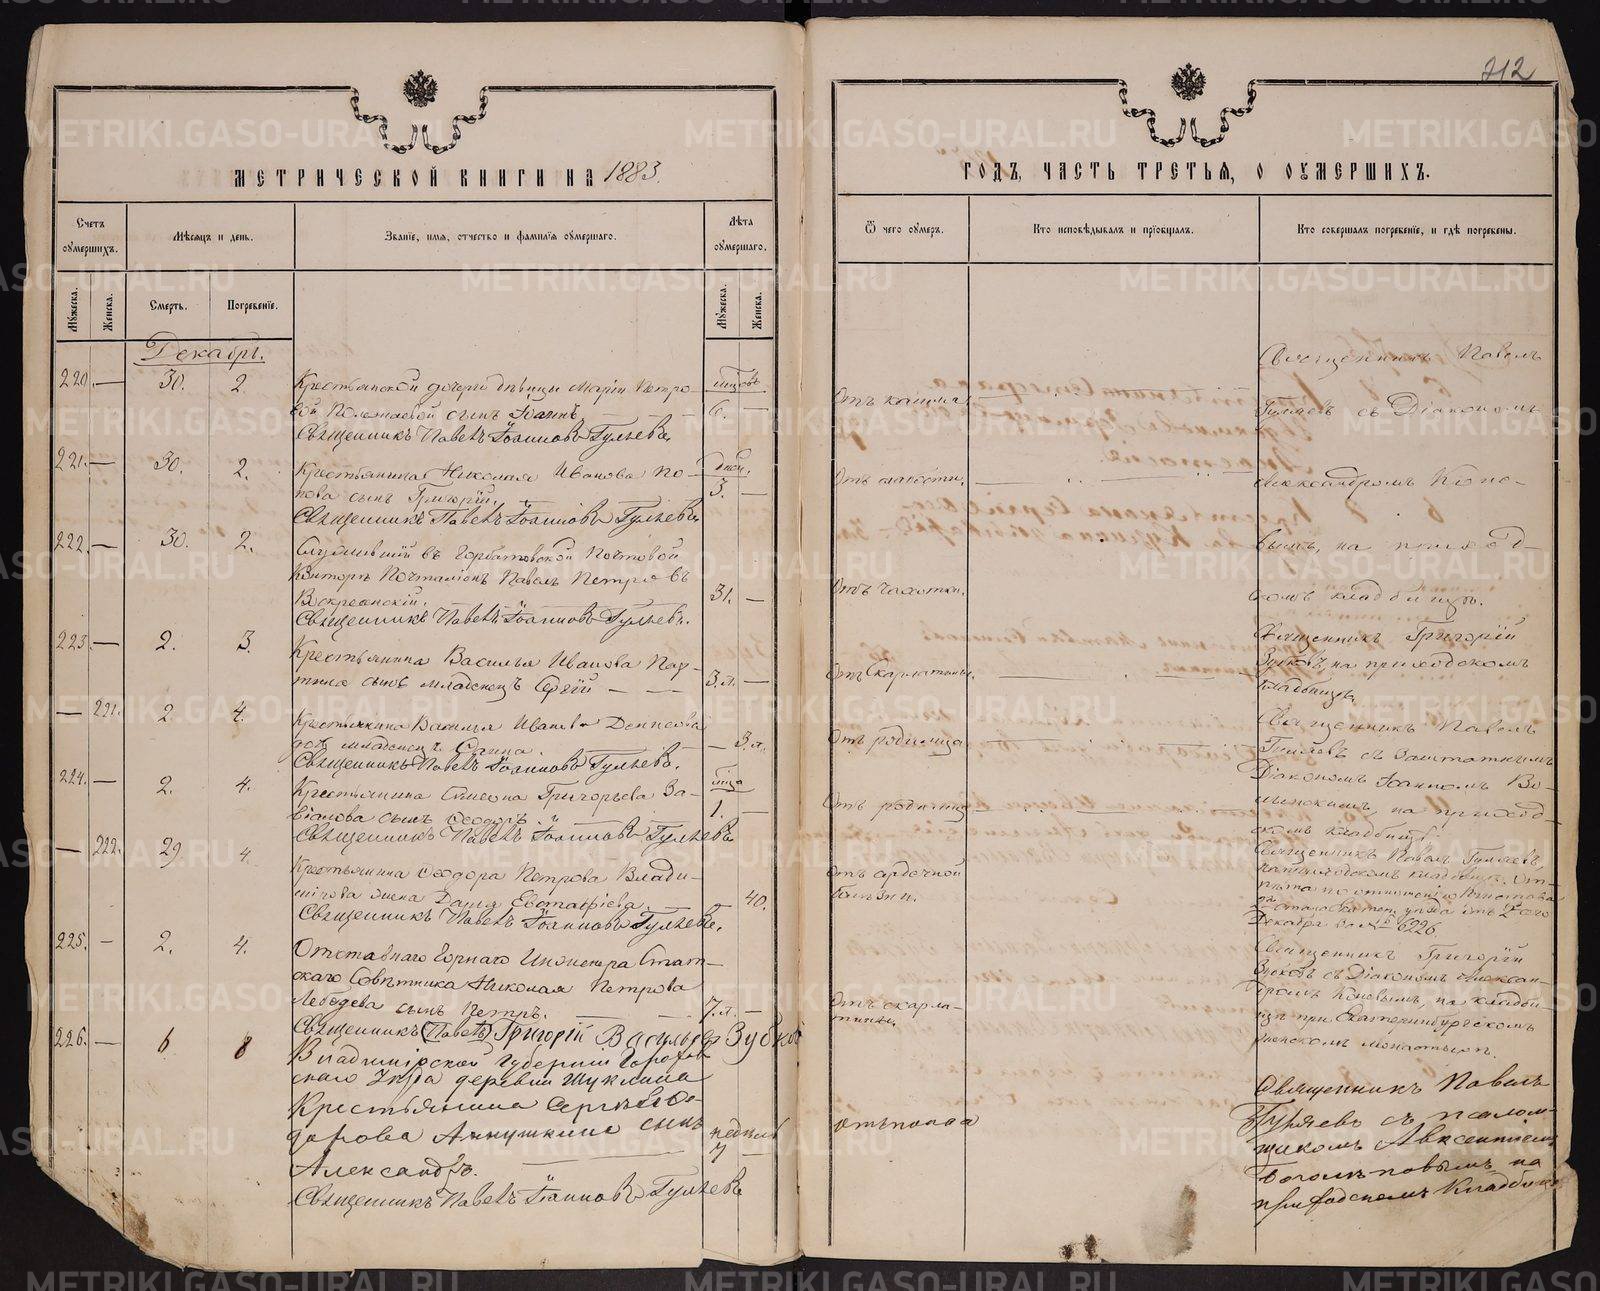 212
МЕТРИЧЕСКОЙ КНИГИ НА 1883.
ГОДЪ, ЧАСТЬ ТРЕТЬЯ, О ОУМЕРШИХЪ.
Счетъ оумершихъ.
Мѣсяцъ и день.
Званїе, имя, отчество и фамилїя оумершаго.
Лѣта оумершаго.
Ѿ чего оумеръ.
Кто исповѣдывалъ и прїобщалъ.
Кто совершалъ погребенїе, и гдѣ погребены.
Мужеска.
Женска.
Смерть.
Погребенїе.
Мужеска.
Женска.
Декабрь.
220. — 30. 2.
Крестьянской дочери дѣвицы Маріи Петро-
вой сынъ Іоаннъ.
Священникъ Павелъ Іоанновъ Гуляевъ.
мѣсцовъ
6. —
Отъ кашля
Священникъ Павелъ
Гуляевъ съ Діакономъ
221. — 30. 2.
Крестьянина Николая Иванова По-
пова сынъ Григорій.
Священникъ Павелъ Іоанновъ Гуляевъ
дней.
3. —
Отъ слабости.
Александромъ Коно-
222. — 30. 2.
Служившій въ Горбатовской Почтовой
Конторѣ Почталіонъ Павелъ Петровъ
Воскресенскій.
Священникъ Павелъ Іоанновъ Гуляевъ.
31. —
Отъ чахотки.
вымъ, на приход-
скомъ кладбищѣ.
223. — 2. 3.
Крестьянина Василья Иванова
сынъ младенецъ Сергій
3.л. —
Отъ Скарлатины.
Священникъ Григорій
Зубковъ, на приходскомъ
кладбищѣ.
— 221. 2 4.
Крестьянина Василья Иванова Денисова
дочь младенецъ
Священникъ Павелъ Іоанновъ Гуляевъ.
— 3.л.
Отъ родимца
Священникъ Павелъ
Гуляевъ съ Заштатнымъ
Діакономъ Іоанномъ
224. — 2. 4.
Крестьянина Симеона Григорьева За-
віалова сынъ Ѳеодоръ.
Священникъ Павелъ Іоанновъ Гуляевъ
мѣсца
1. —
Отъ родимца
на приход-
скомъ кладбищѣ.
— 222. 29 4.
Крестьянина Ѳеодора Петрова Влади-
мірова жена Дарья Евстафіева.
Священникъ Павелъ Іоанновъ Гуляевъ.
— 40.
Отъ сердечной
болѣзни.
Священникъ Павелъ Гуляевъ,
на приходскомъ кладбищѣ.
по отношенію Пристава
Декабря за № 6226.
225. — 2. 4.
Отставнаго Горнаго Инженера Стат-
скаго Совѣтника Николая Петрова
Лебедева сынъ Петръ.
Священникъ (Павелъ) Григорій Васильевъ Зубковъ
7.л. —
Отъ скарла-
тины.
Священникъ Григорій
Зубковъ съ Діакономъ Алексан-
дромъ Коновымъ, на кладби-
щѣ при Екатеринбургскомъ
женскомъ монастырѣ.
226. — 6 8
Владимірской Губерніи Горохов-
скаго Уѣзда деревни Шуклина
Крестьянина Сергѣя Ѳе-
дорова Аннушкина сынъ
Александръ.
Священникъ Павелъ Іоанновъ Гуляевъ
недѣль
7 —
отъ поноса
Священникъ Павелъ
Гуляевъ съ псалом-
щикомъ Авксентіемъ
Боголѣповымъ на
приходскомъ кладбищѣ